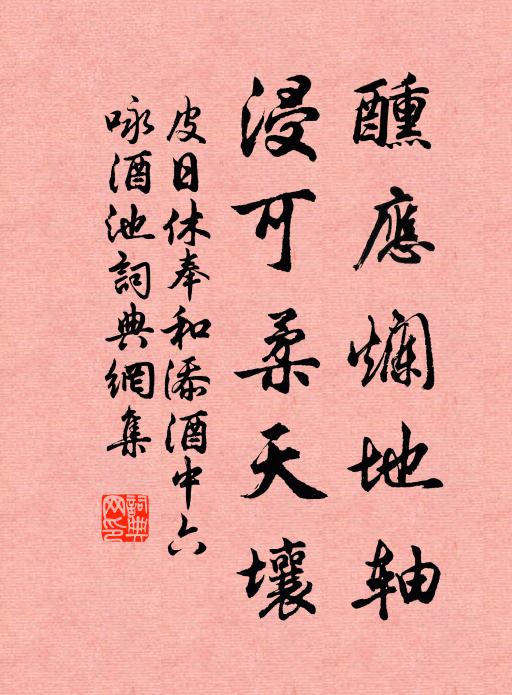 醺應爛地軸
浸可柔天壤
皮日休奉和添酒中六
咏酒池詞典網集
詞典网印